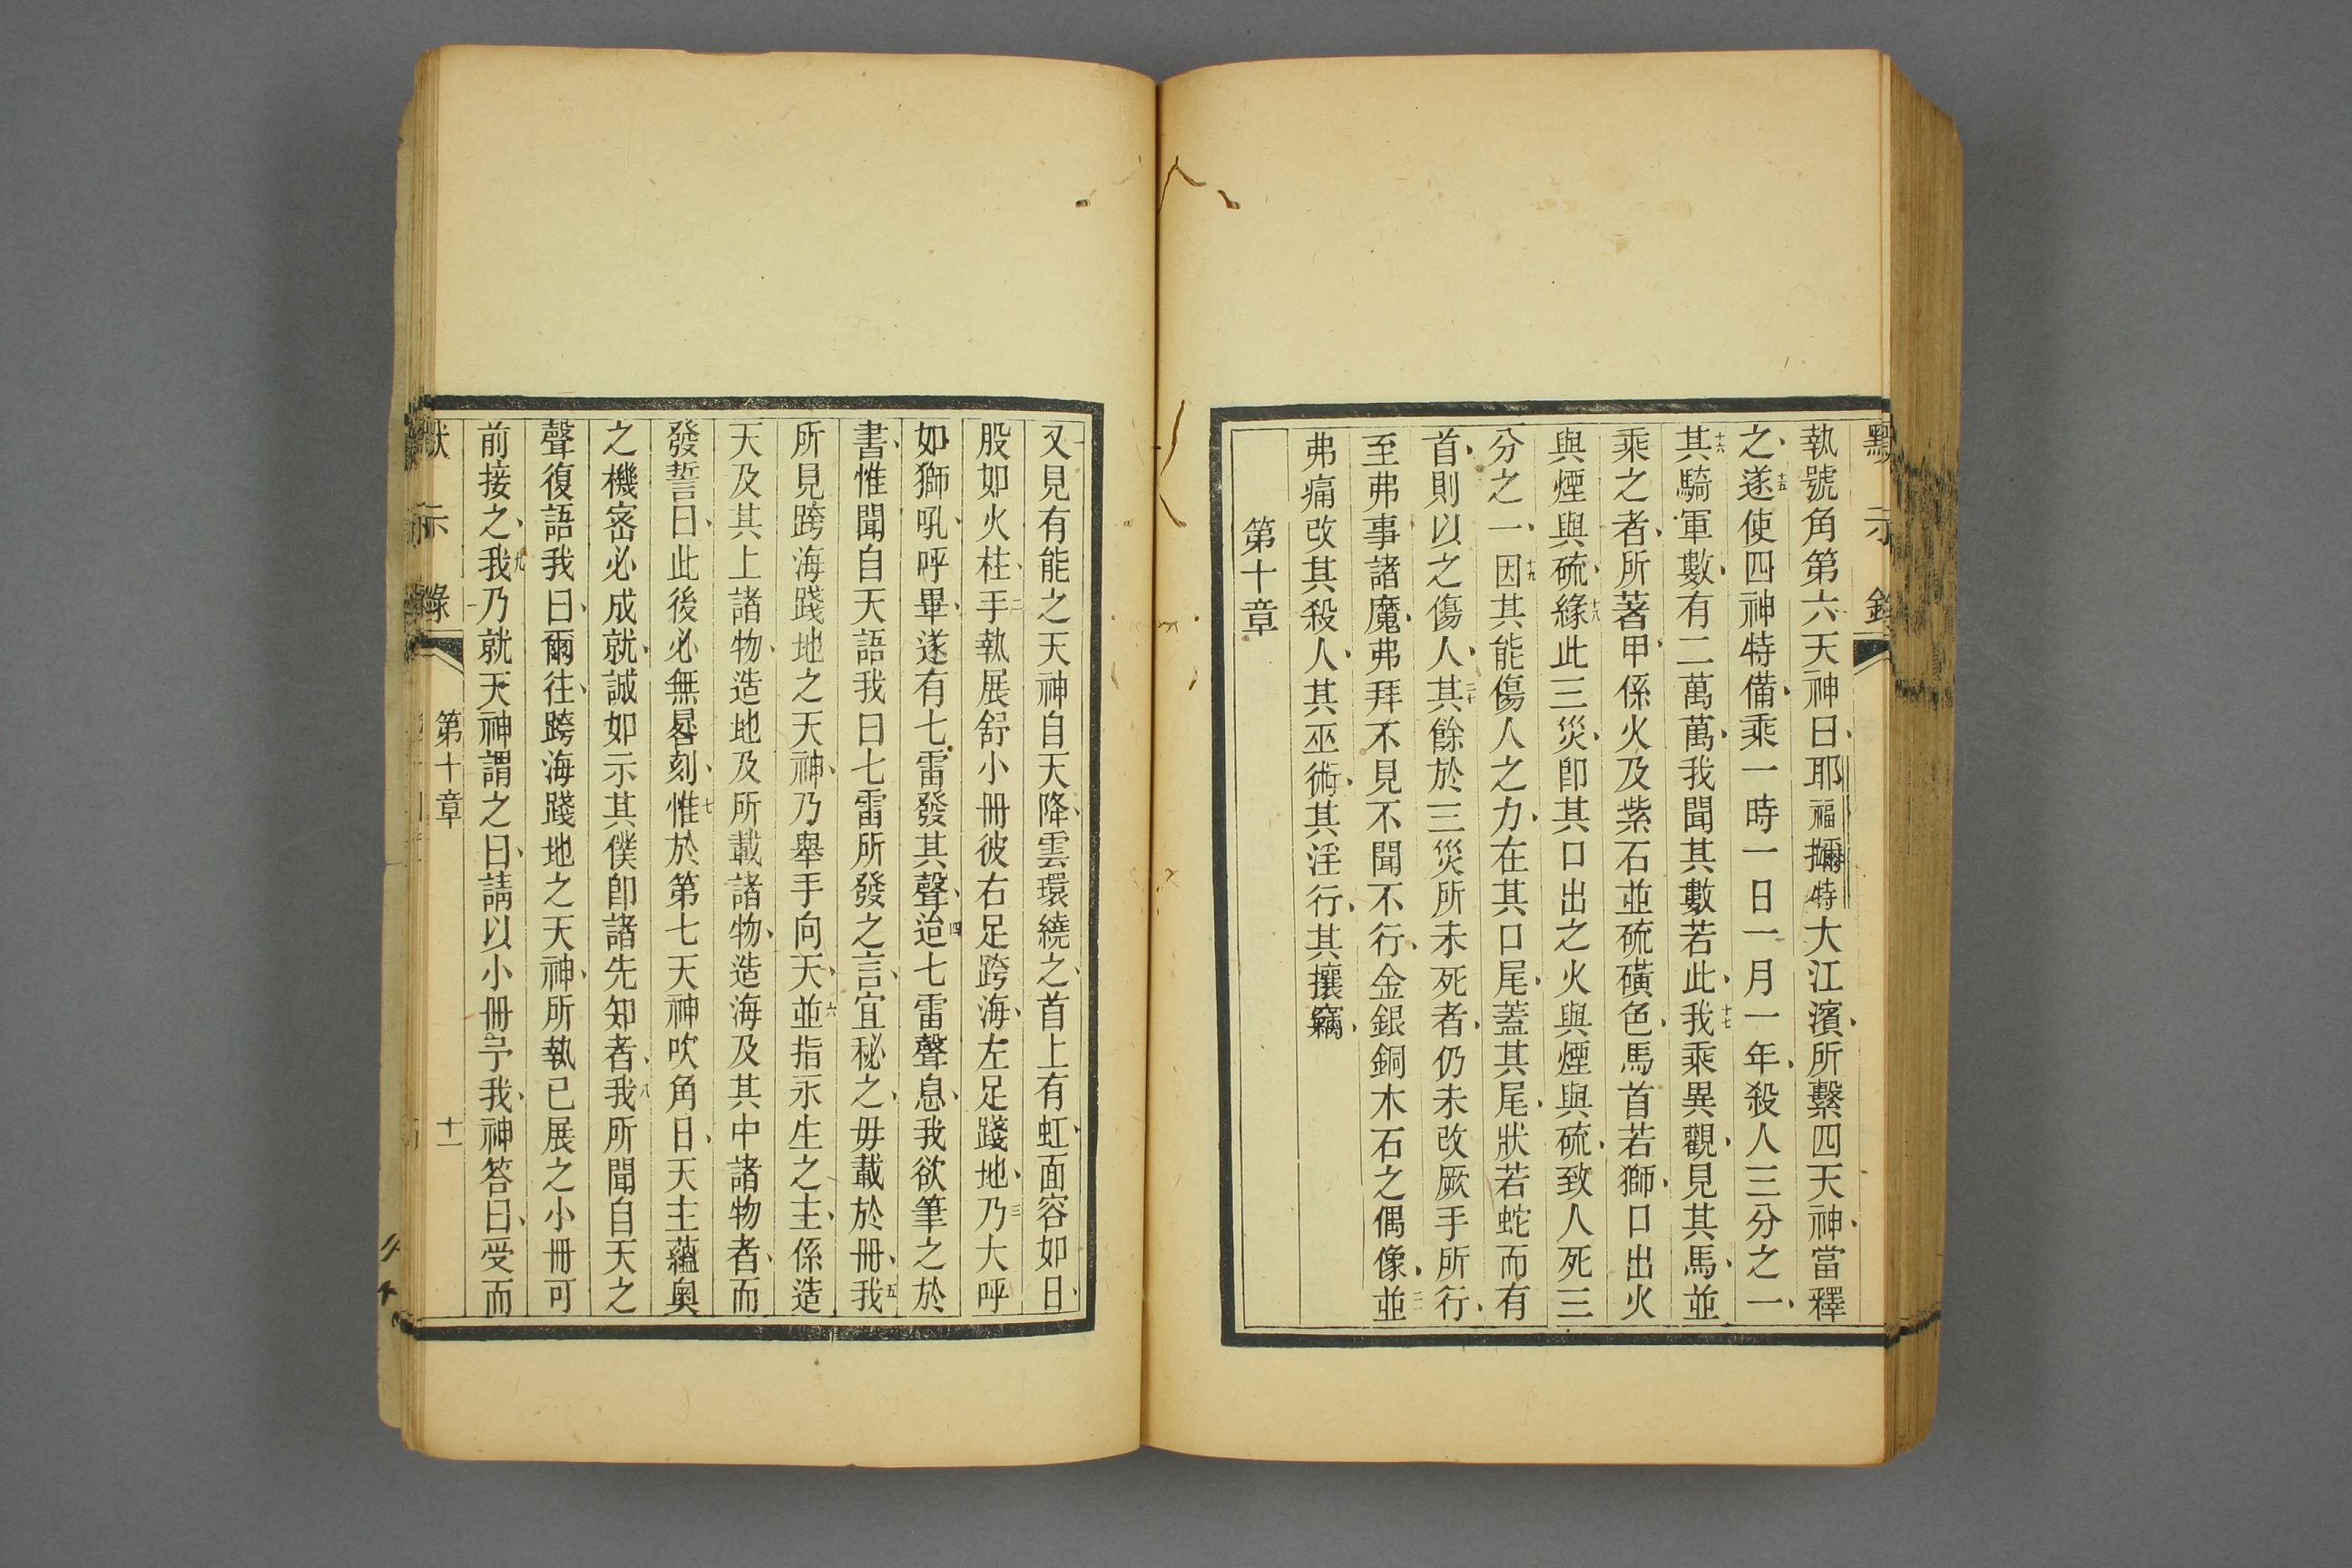 默示錄
執號角第六天神曰、耶福擕特大江濱、所繫四天神、當釋
之、十五遂使四神特備、乘一時一日一月一年、殺人三分之一、
十六其騎軍數、有二萬萬、我聞其數若此、十七我乘異觀、見其馬、並
乘之者、所著甲、係火及紫石並硫磺色、馬首若獅、口出火
與煙與硫、十八緣此三災、卽其口出之火與煙與硫、致人死三
分之一、十九因其能傷人之力、在其口尾、蓋其尾、狀若蛇而有
首、則以之傷人、二十其餘於三災所未死者、仍未改厥手所行、
至弗事諸魔、弗拜不見不聞不行、金銀銅木石之偶像、二一並
弗痛改其殺人、其巫術、其淫行、其攘竊、
第十章
一又見有能之天神自天降、雲環繞之、首上有虹、面容如日、
股如火柱、二手執展舒小冊、彼右足跨海、左足踐地、三乃大呼
如獅吼、呼畢、遂有七雷發其聲、四迨七雷聲息、我欲筆之於
書、惟聞自天語我曰七雷所發之言、宜秘之、毋載於冊、五我
所見跨海踐地之天神、乃舉手向天、六並指永生之主、係造
天及其上諸物、造地及所載諸物、造海及其中諸物者、而
發誓曰、此後必無晷刻、七惟於第七天神吹角日、天主蘊奧
之機密必成就、誠如示其僕卽諸先知者、八我所聞自天之
聲復語我曰、爾往、跨海踐地之天神、所執已展之小冊可
前接之、九我乃就天神謂之曰、請以小冊予我、神答曰、受而
默示錄 第十章 十一